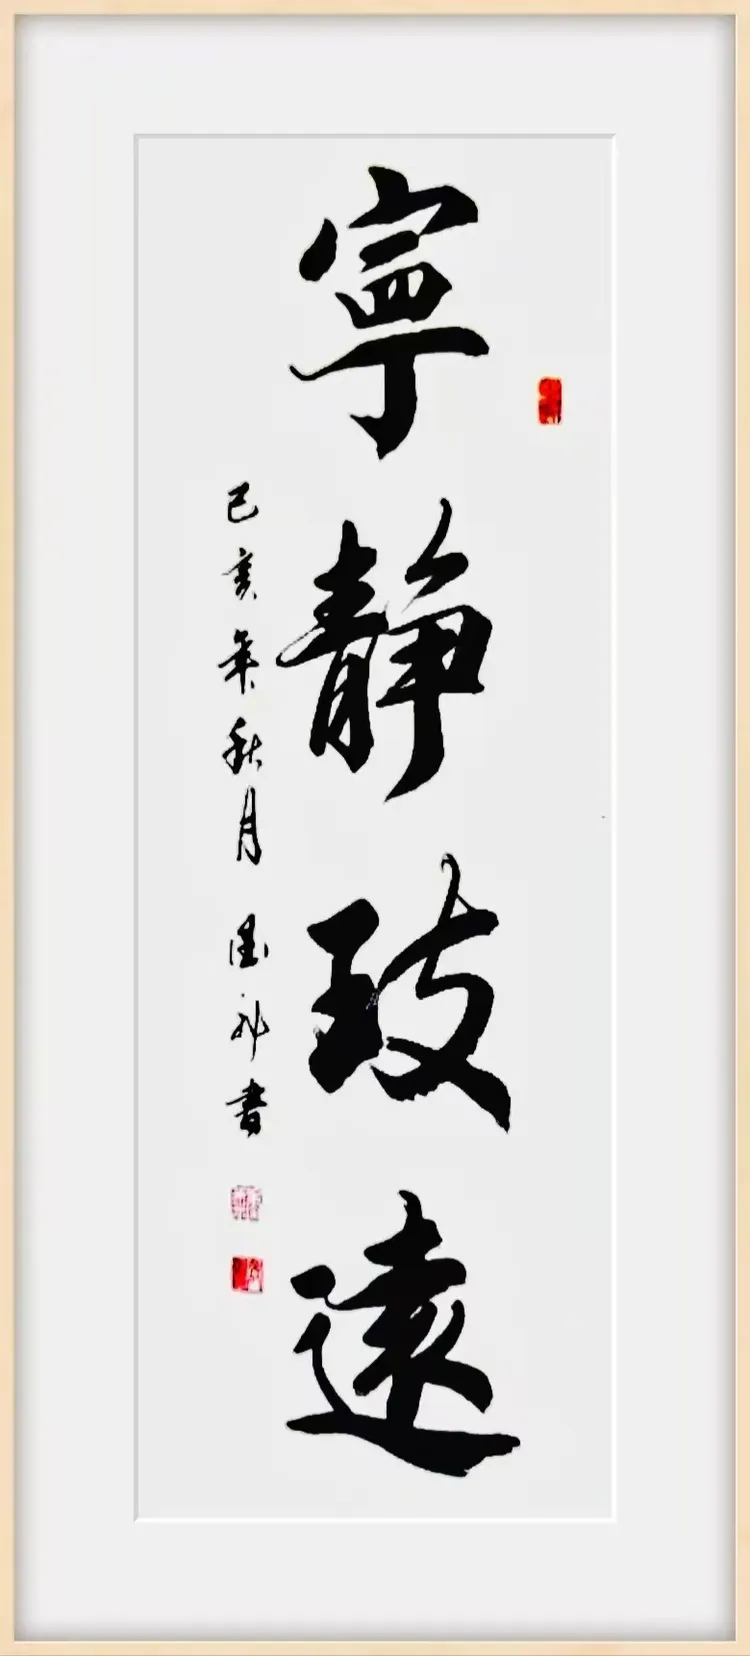 寧靜致遠
己亥年秋月 書